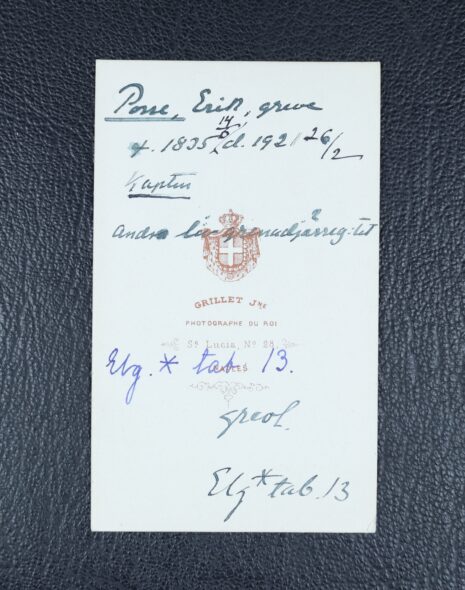 Posse, Erik, greve
f. 1835 14/6, d. 1921 26/2
Kapten
andra livgrenadjärreg:tet
GRILLET JNE
PHOTOGRAPHE DU ROI
Sa Lucia, No 28,
NAPLES
Elg. * tab. 13.
greol.
Elg * tab. 13